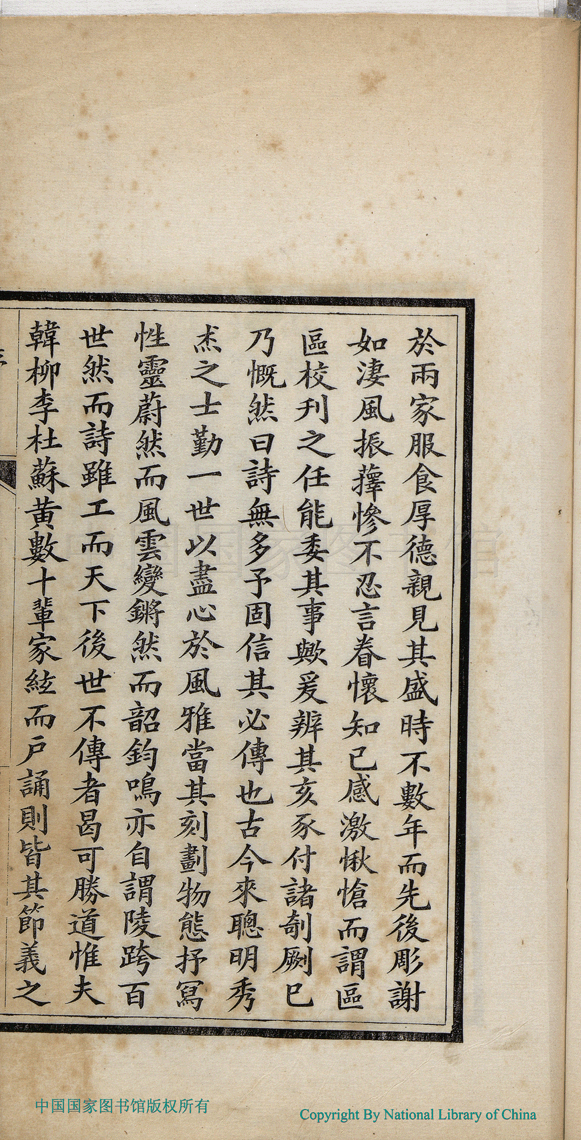 於兩家服食厚德親見其盛時不數年而先後彫謝
如淒風振蘀慘不忍言眷懷知己感激愀愴而謂區
區校刊之任能委其事歟爰辨其亥豕付諸剞劂已
乃慨然曰詩無多予固信其必傳也古今來聰明秀
杰之士勤一世以盡心於風雅當其刻劃物態抒寫
性靈蔚然而風雲變鏘然而韶鈞鳴亦自謂陵跨百
世然而詩雖工而天下後世不傳者曷可勝道惟夫
韓柳李杜蘇黃數十輩家絃而戶誦則皆其節義之
中国国家图书馆
中国国家图书馆版权所有
Copyright By National Library of China